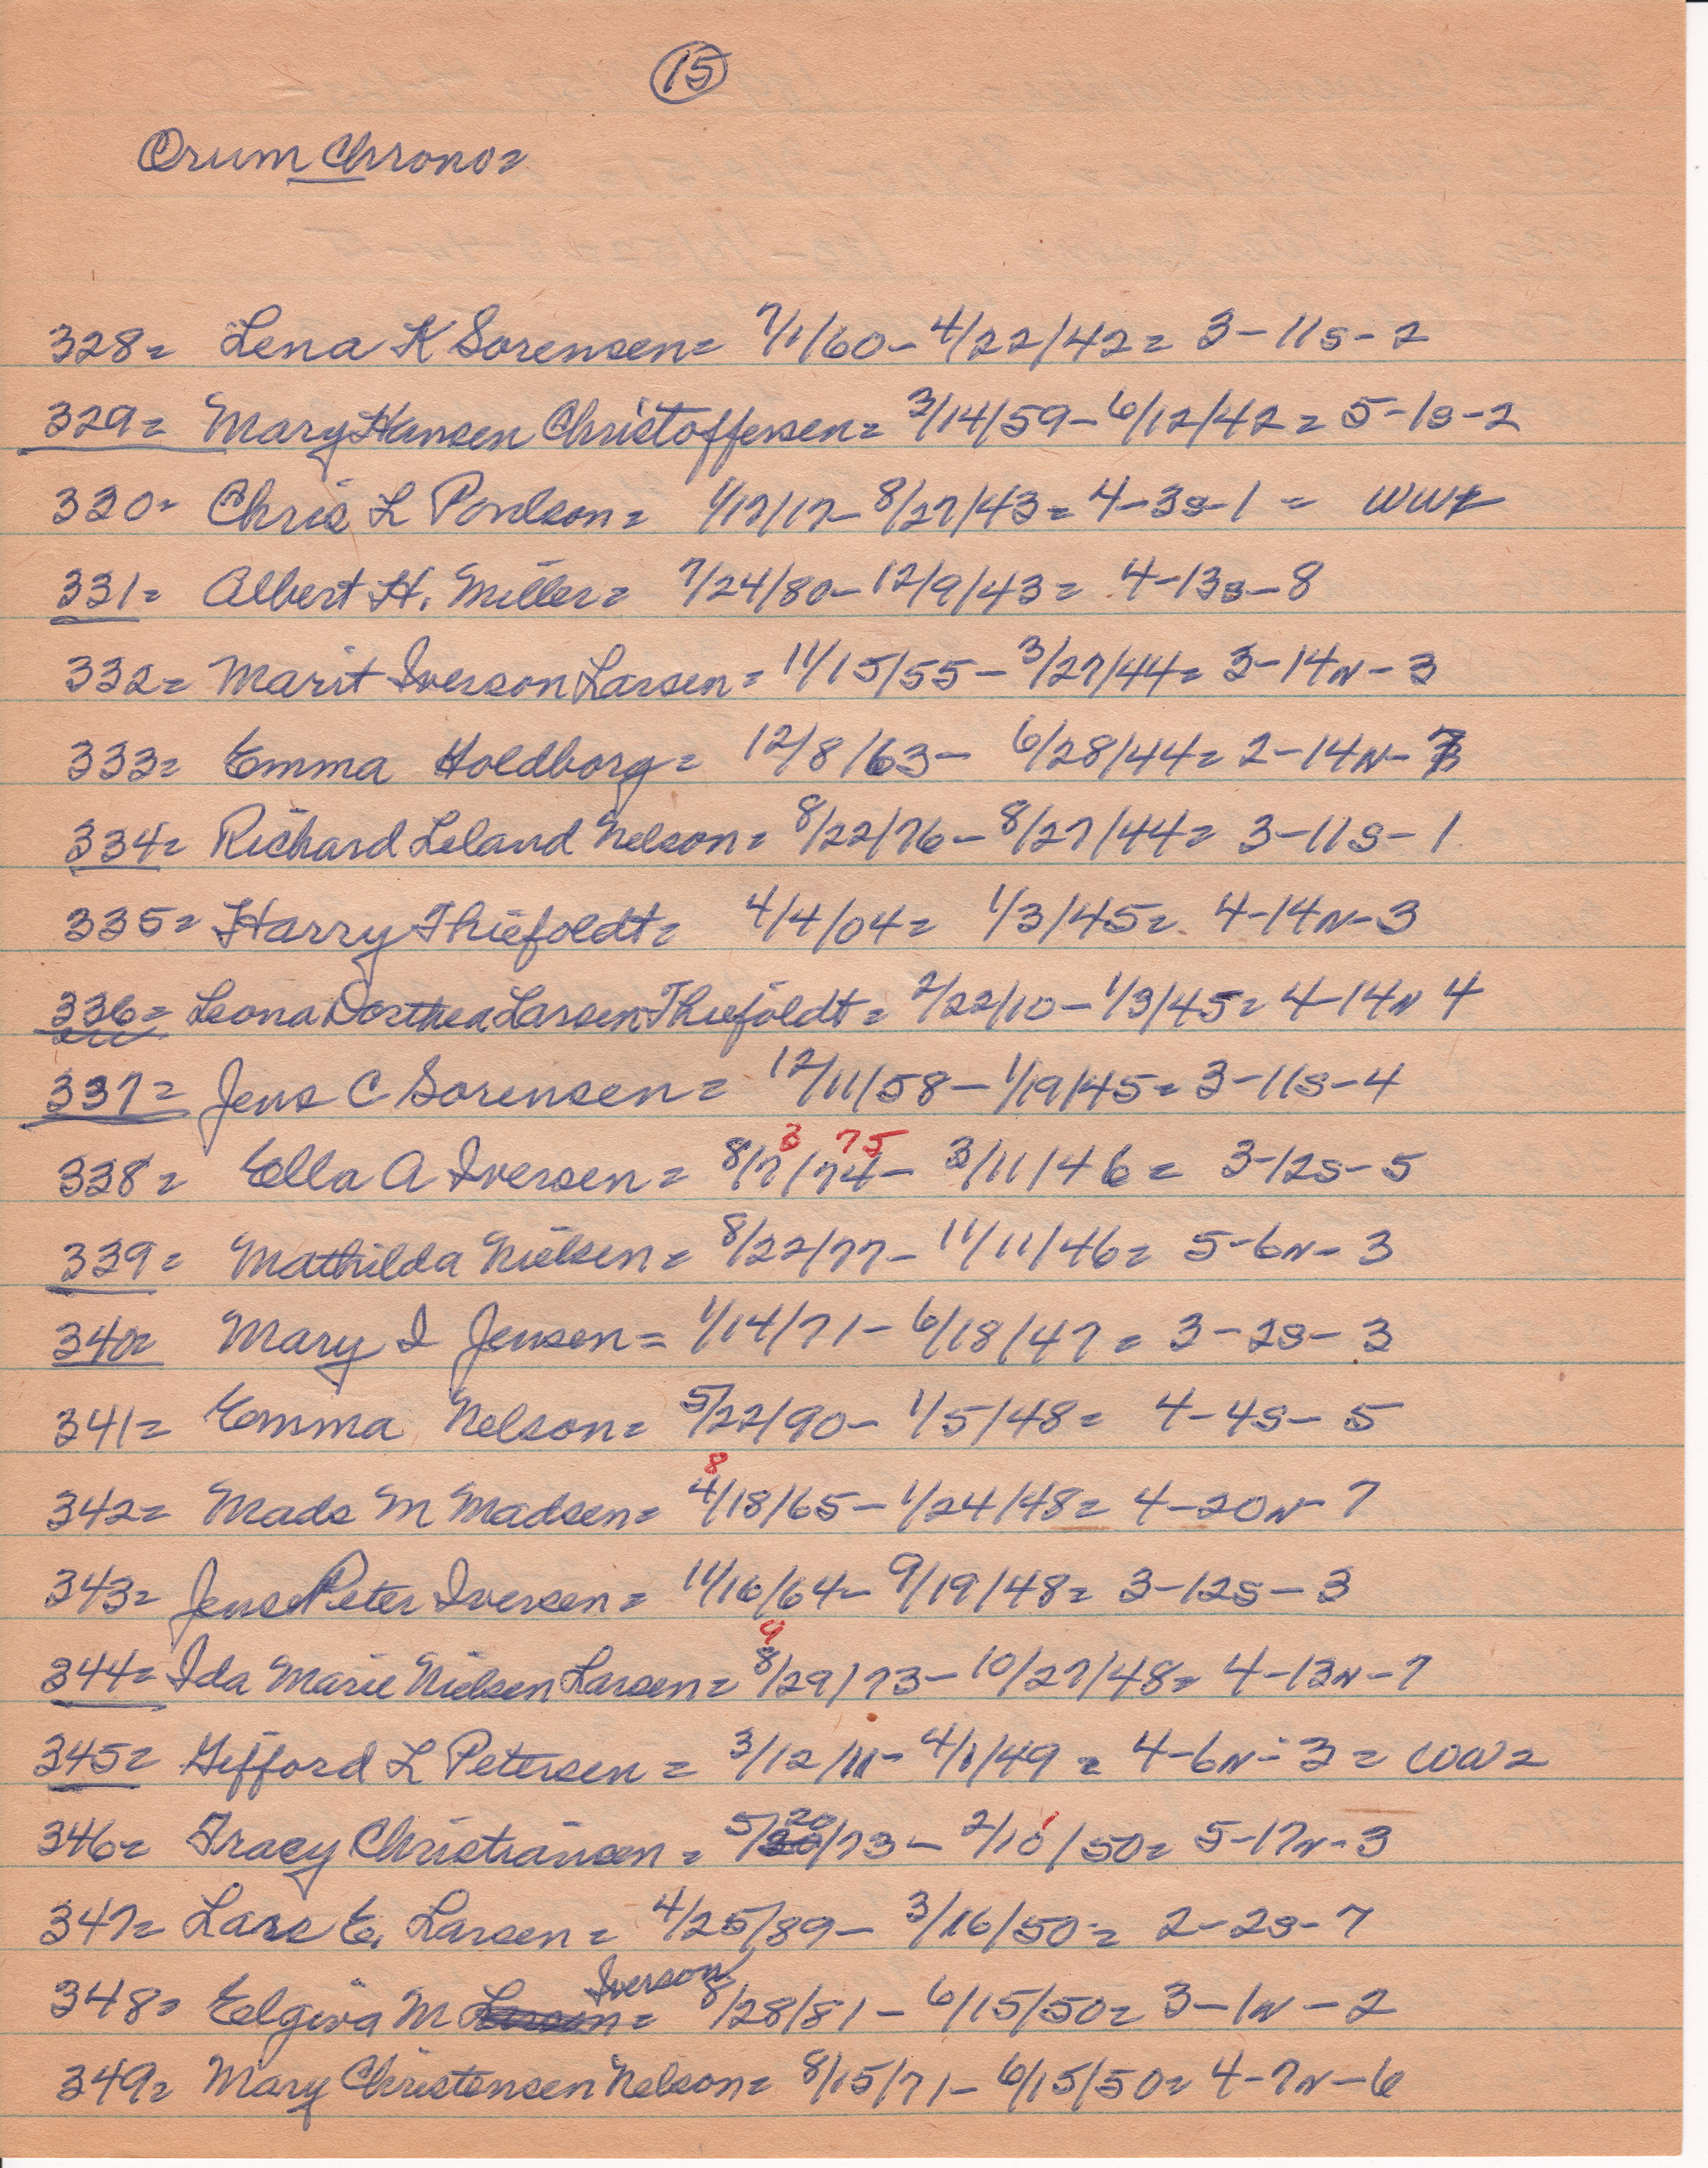 15
Orum Chrono=
328= Lena K Sorensen= 7/1/60- 4/22/42= 3-11s-2
329= Mary Hansen Christoffersen= 3/14/59-6/12/42= 5-1s-2
330= Chris L Poulson= 1/17/17- 8/27/43= 4-3s-1 = WW
331= Albert H. Miller= 7/24/80-12/9/43= 4-13s-8
332= Marit Iverson Larsen= 11/15/55-3/27/44= 3-14N-3
333= Emma Holdborg= 12/8/63- 6/28/44= 2-14N-
334= Richard Leland Nelson= 8/22/76-8/27/44= 3-11s-1
335= Harry Thiefoldt= 4/4/04= 1/3/45= 4-14N-3
336= Leona Dorthea Larsen Thiefoldt= 2/22/10-1/3/45= 4-14N 4
337= Jens C Sorensen= 12/11/58-1/19/45= 3-11s-4
3 75
338= Ella A Iversen= 8/7/74- 3/11/46= 3-12s-5
339= Mathilda Nielsen= 8/22/77- 11/11/46= 5-6N-3
340= Mary I Jensen= 1/14/71- 6/18/47= 3-2s-3
341= Emma Nelson= 5/22/90- 1/5/48= 4-4s-5
8
342= Mads M Madsen= 4/18/65-1/24/48= 4-20N-7
343= Jens Peter Iversen= 11/16/64- 9/19/48= 3-12s-3
9
344= Ida Marie Nielsen Larsen= 8/29/73-10/27/48= 4-13N-7
345= Gifford L Petersen= 3/12/11- 4/1/49= 4-6N-3= WW2
20
346= Tracy Christiansen= 5/20/73- 2/10/50= 5-17N-3
347= Lars E. Larsen= 4/25/89- 3/16/50= 2-2s-7
Iverson
348= Eelgiva M Larsen= 8/28/81- 6/15/50= 3-1N-2
349= Mary Christensen Nelson= 8/15/71- 6/15/50= 4-7N-6